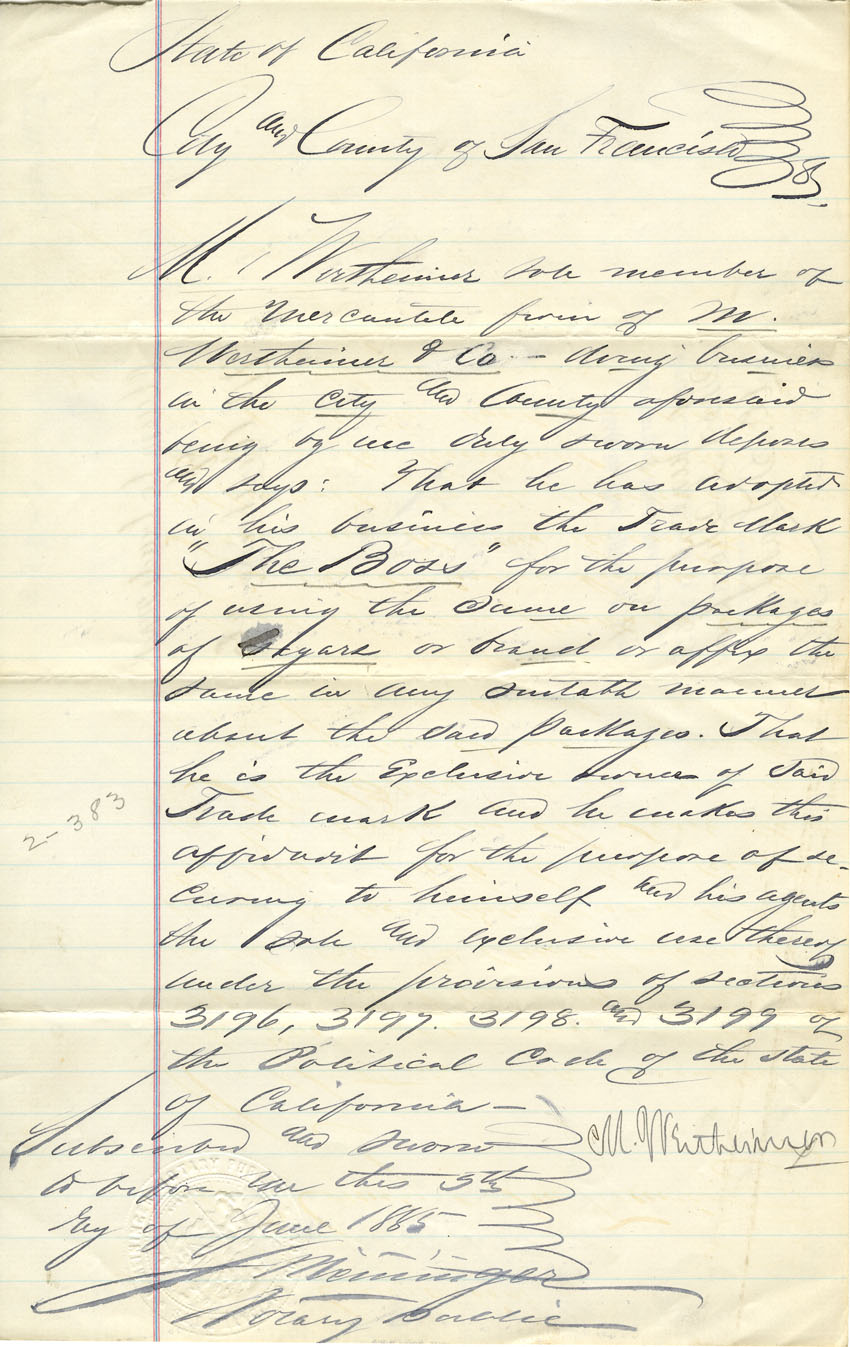 State of California
City and County of San Francisco ss.
M. Wertheimer sole member of
the Mercantile firm of M.
Wertheimer & Co - doing business
in the City and County aforesaid
being by me duly sworn deposes
and says: That he has adopted
in his business the Trade Mark
"The Boss" for the purpose
of using the same on packages
of Segars or brand or affix the
same in any suitable manner
about the said packages. That
he is the Exclusive owner of said
Trade mark and he makes this
affidavit for the purpose of se-
curing to himself and his agents
the sole and exclusive use thereof
under the provisions of sections
3196, 3197. 3198. and 3199 of
the Political Code of the State
of California -
M. Wertheimer
Subscribed and sworn
to before me this 5th
day of June 1885
Notary Public
2-383